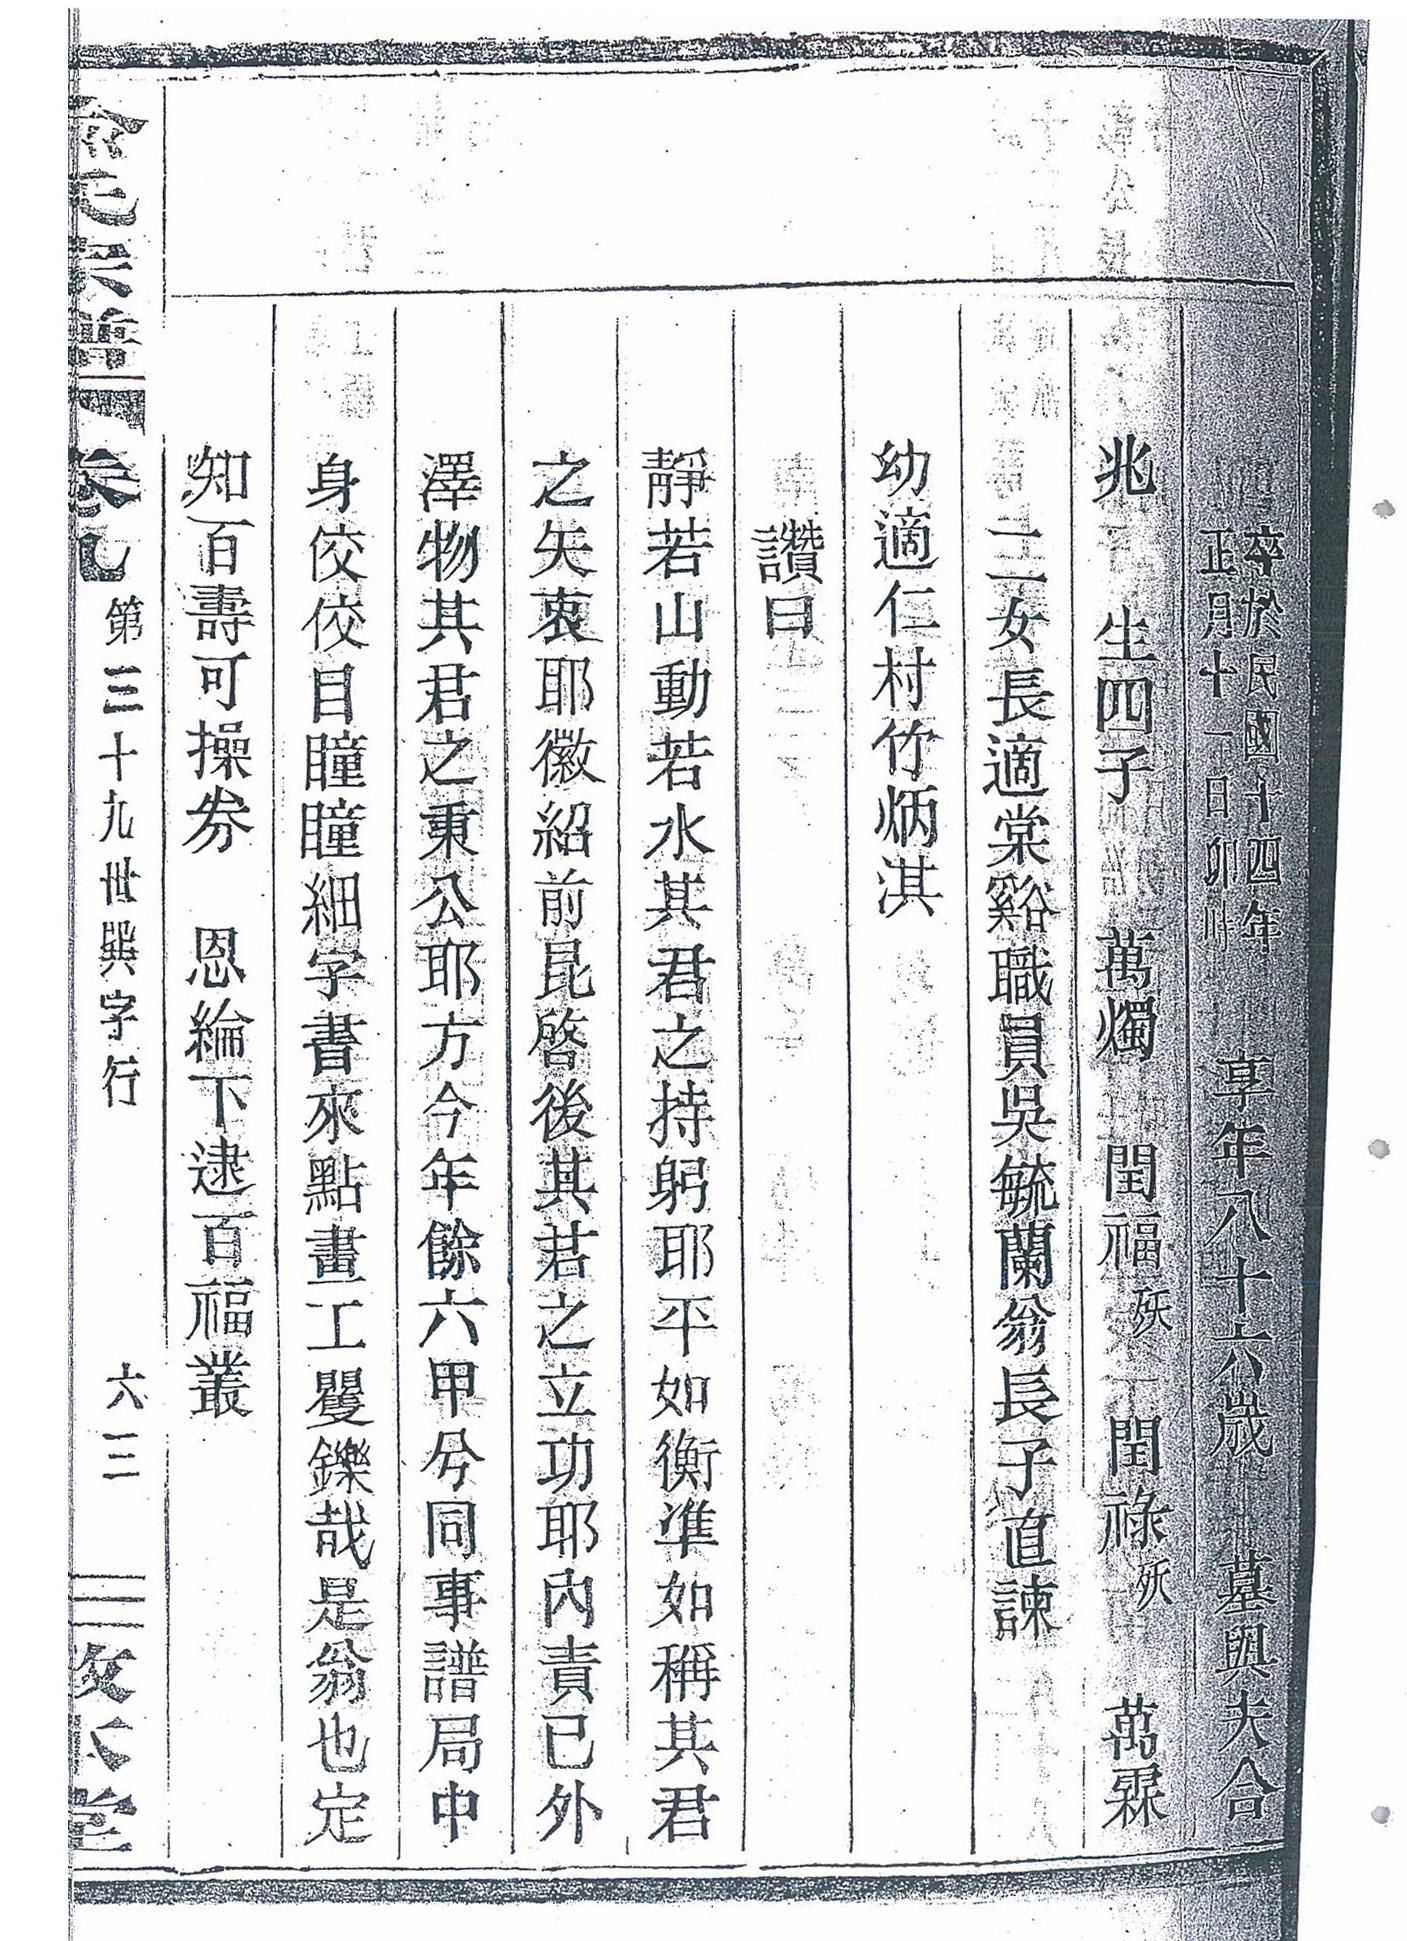 卒於民國十四年
正月十一日卯時
享年八十六歲　墓與夫合
兆　生四子　萬燭　閏福殀　閏祿殀　萬霖
二女長適棠谿職員吳毓蘭翁長子直諫
幼適仁村竹炳淇
讚曰
靜若山動若水其君之持躬耶平如衡准如稱其君
之矢衷耶徽紹前昆啓後其君之立功耶內責已外
澤物其君之秉公耶方今年餘六甲兮同事譜局中
身佼佼目瞳瞳細字書來點畫工矍鑠哉是翁也定
知百壽可操劵　恩綸下逮百福叢
俞氏宗譜　卷九　第三十九世巽字行　六三　敦本堂